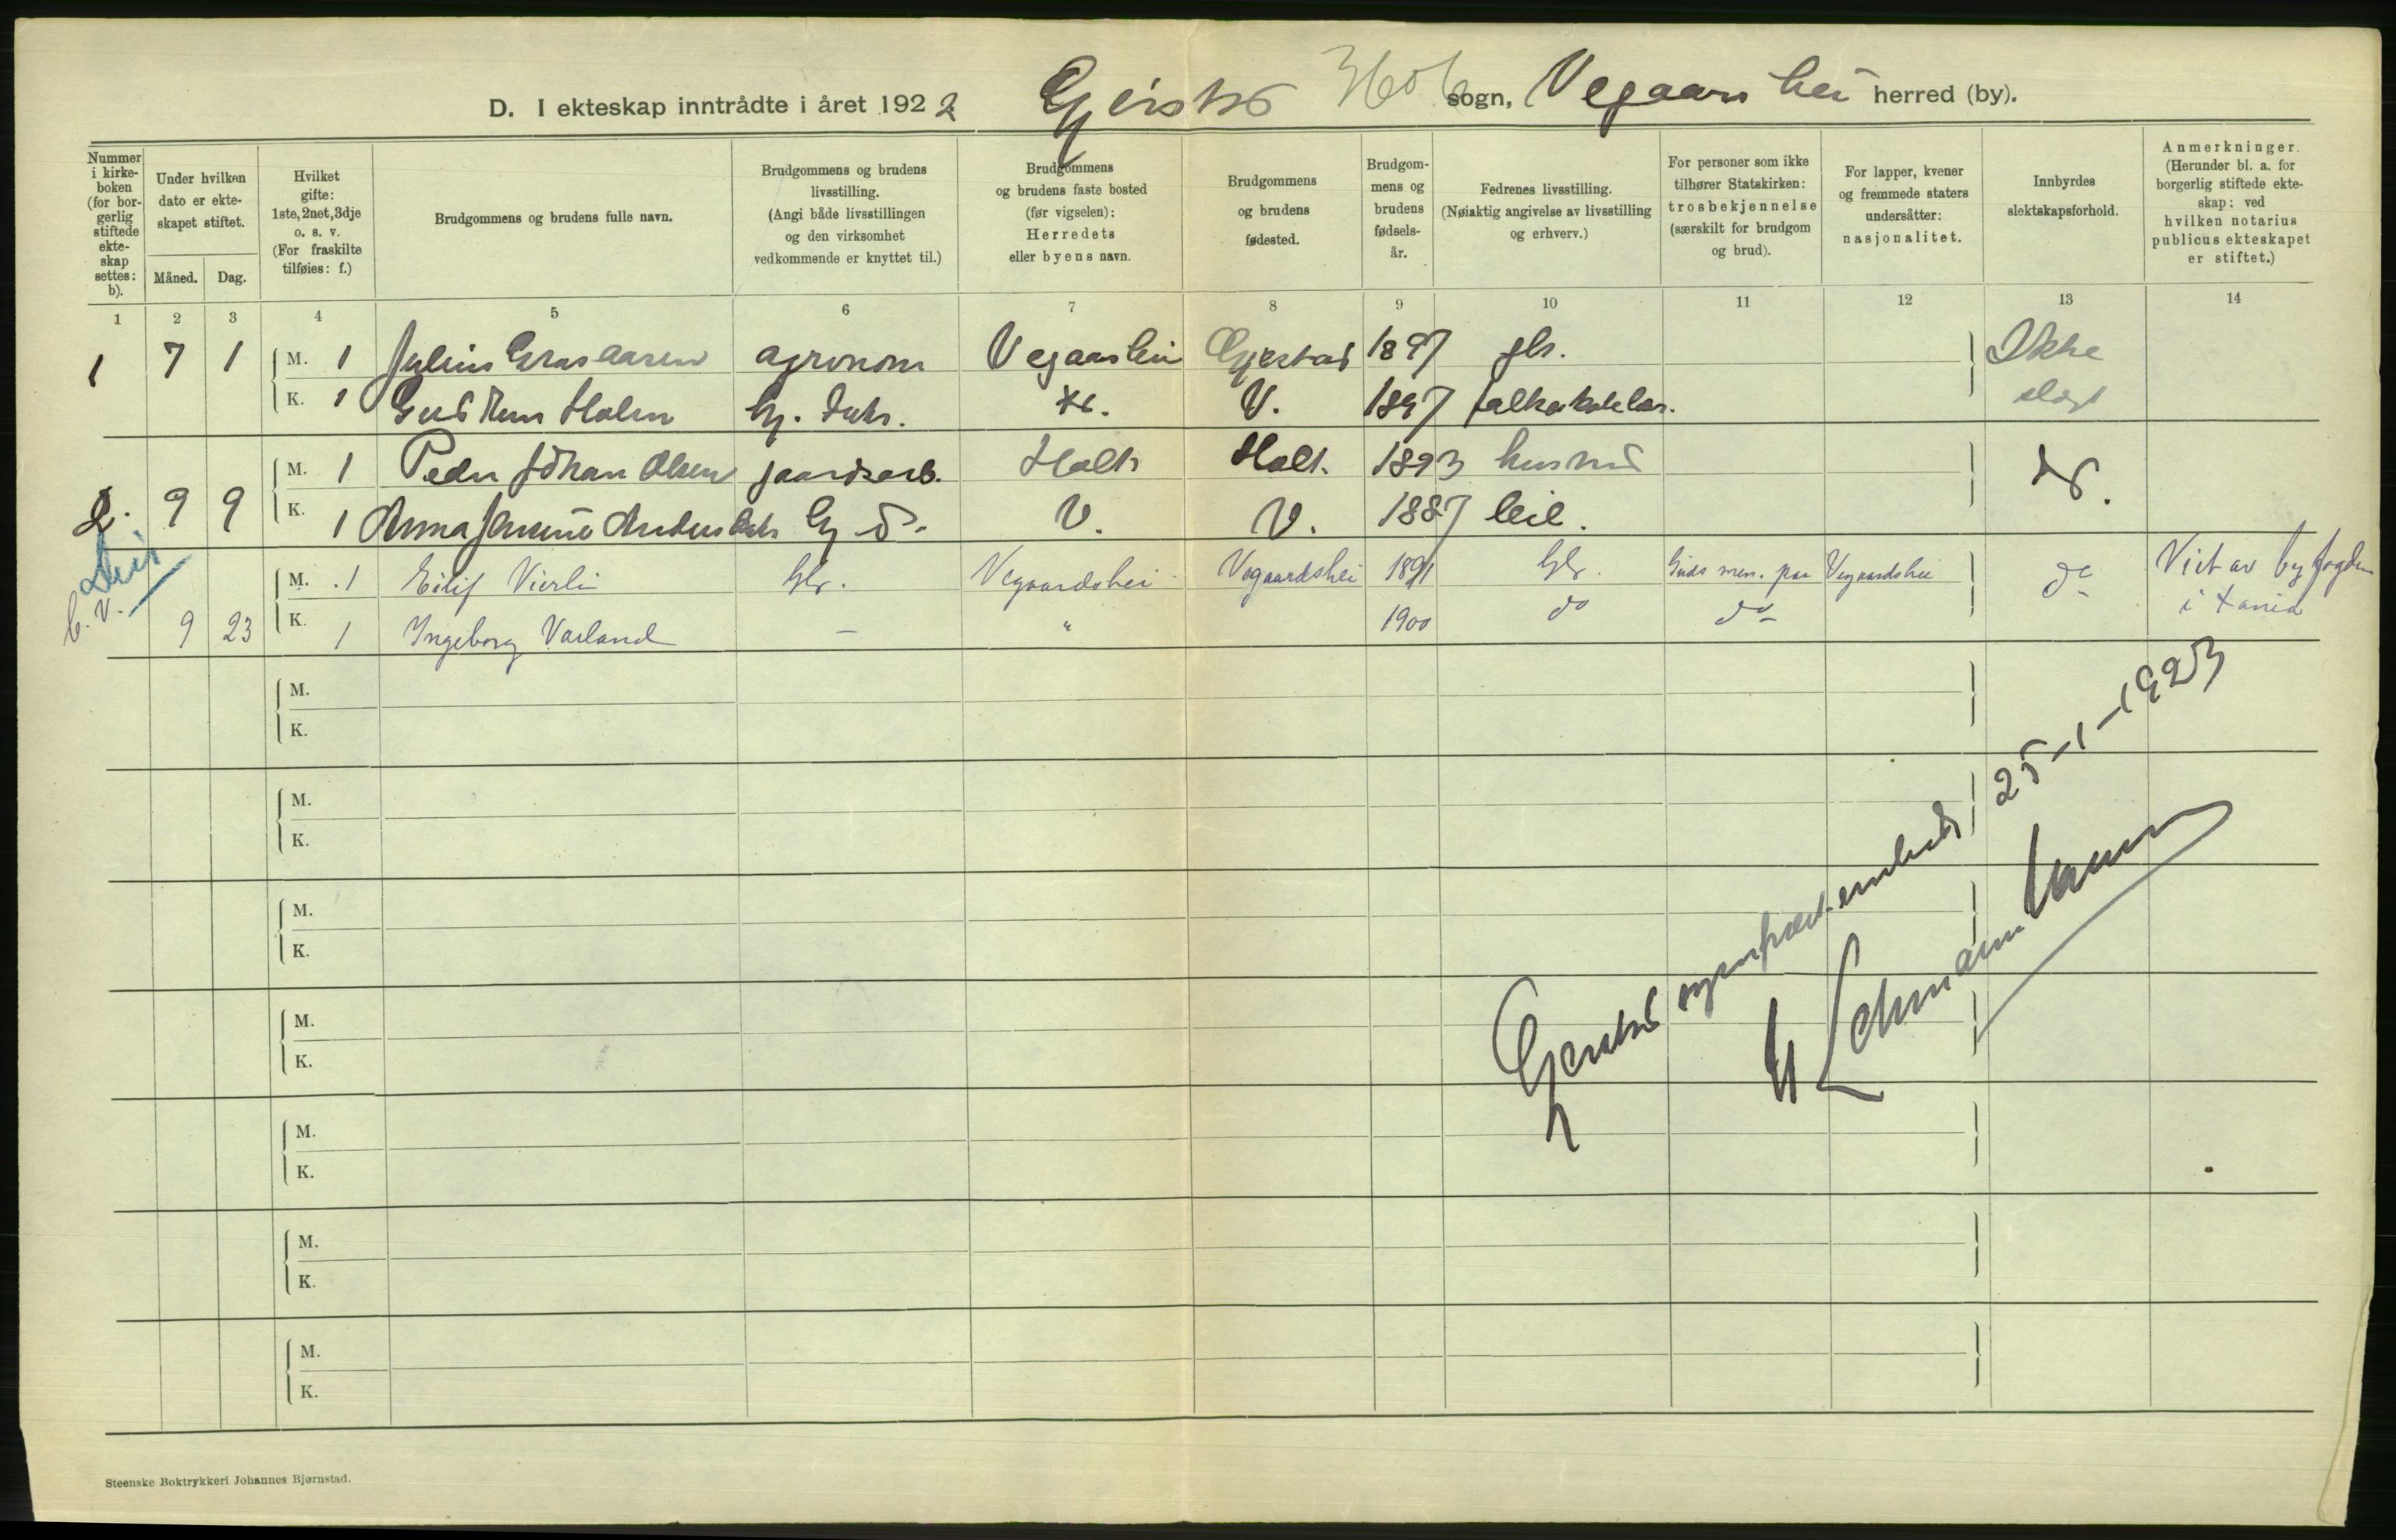 D. I ekteskap inntrådte i året 1922 sogn, Vegaarshei herred (by).
Nummer i kirkeboken (for borgerlig stiftede ekteskap settes: b).
Under hvilken dato er ekteskapet stiftet.
Måned. Dag.
Hvilket gifte: 1ste, 2net, 3dje o. s. v. (For fraskilte tilføies: f.)
Brudgommens og brudens fulle navn.
Brudgommens og brudens livsstilling. (Angi både livsstillingen og den virksomhet vedkommende er knyttet til.)
Brudgommens og brudens faste bosted (før vigselen): Herredets eller byens navn.
Brudgommens og brudens fødested.
Brudgommens og brudens fødselsår.
Fedrenes livsstilling. (Nøiaktig angivelse av livsstilling og erhverv.)
For personer som ikke tilhører Statskirken: trosbekjennelse (særskilt for brudgom og brud).
For lapper, kvener og fremmede staters undersåtter: nasjonalitet.
Innbyrdes slektskapsforhold.
Anmerkninger. (Herunder bl. a. for borgerlig stiftede ekteskap: ved hvilken notarius publicus ekteskapet er stiftet.)
1 2 3 4 5 6 7 8 9 10 11 12 13 14
1 7 1 M. 1 Julius agronom Vegaarshei Gjerstad 1897 gbr. Ikke
K. 1 Gudrun Holen V. 1897 slegt
M. 1 Peder Johan Olsen gaardsarb. Holt Holt. 1893 husmd
2. 9 9 K. 1 Anna V. V. 1887 leil.
b. v.
M. 1 Eilif Vierli Gbr. Vegaardshei Vegaardshei 1891 Gbr. Guds men. paa Vegaardshei do Viet av byfogden
9 23 K. 1 Ingeborg Varland — " 1900 do do i
M.
K.
M.
K.
M.
K.
M.
K.
M.
K.
M.
K.
M.
K.
Gjerstad sogneprestembede 25-1-1923
Lehmann
Steenske Boktrykkeri Johannes Bjørnstad.